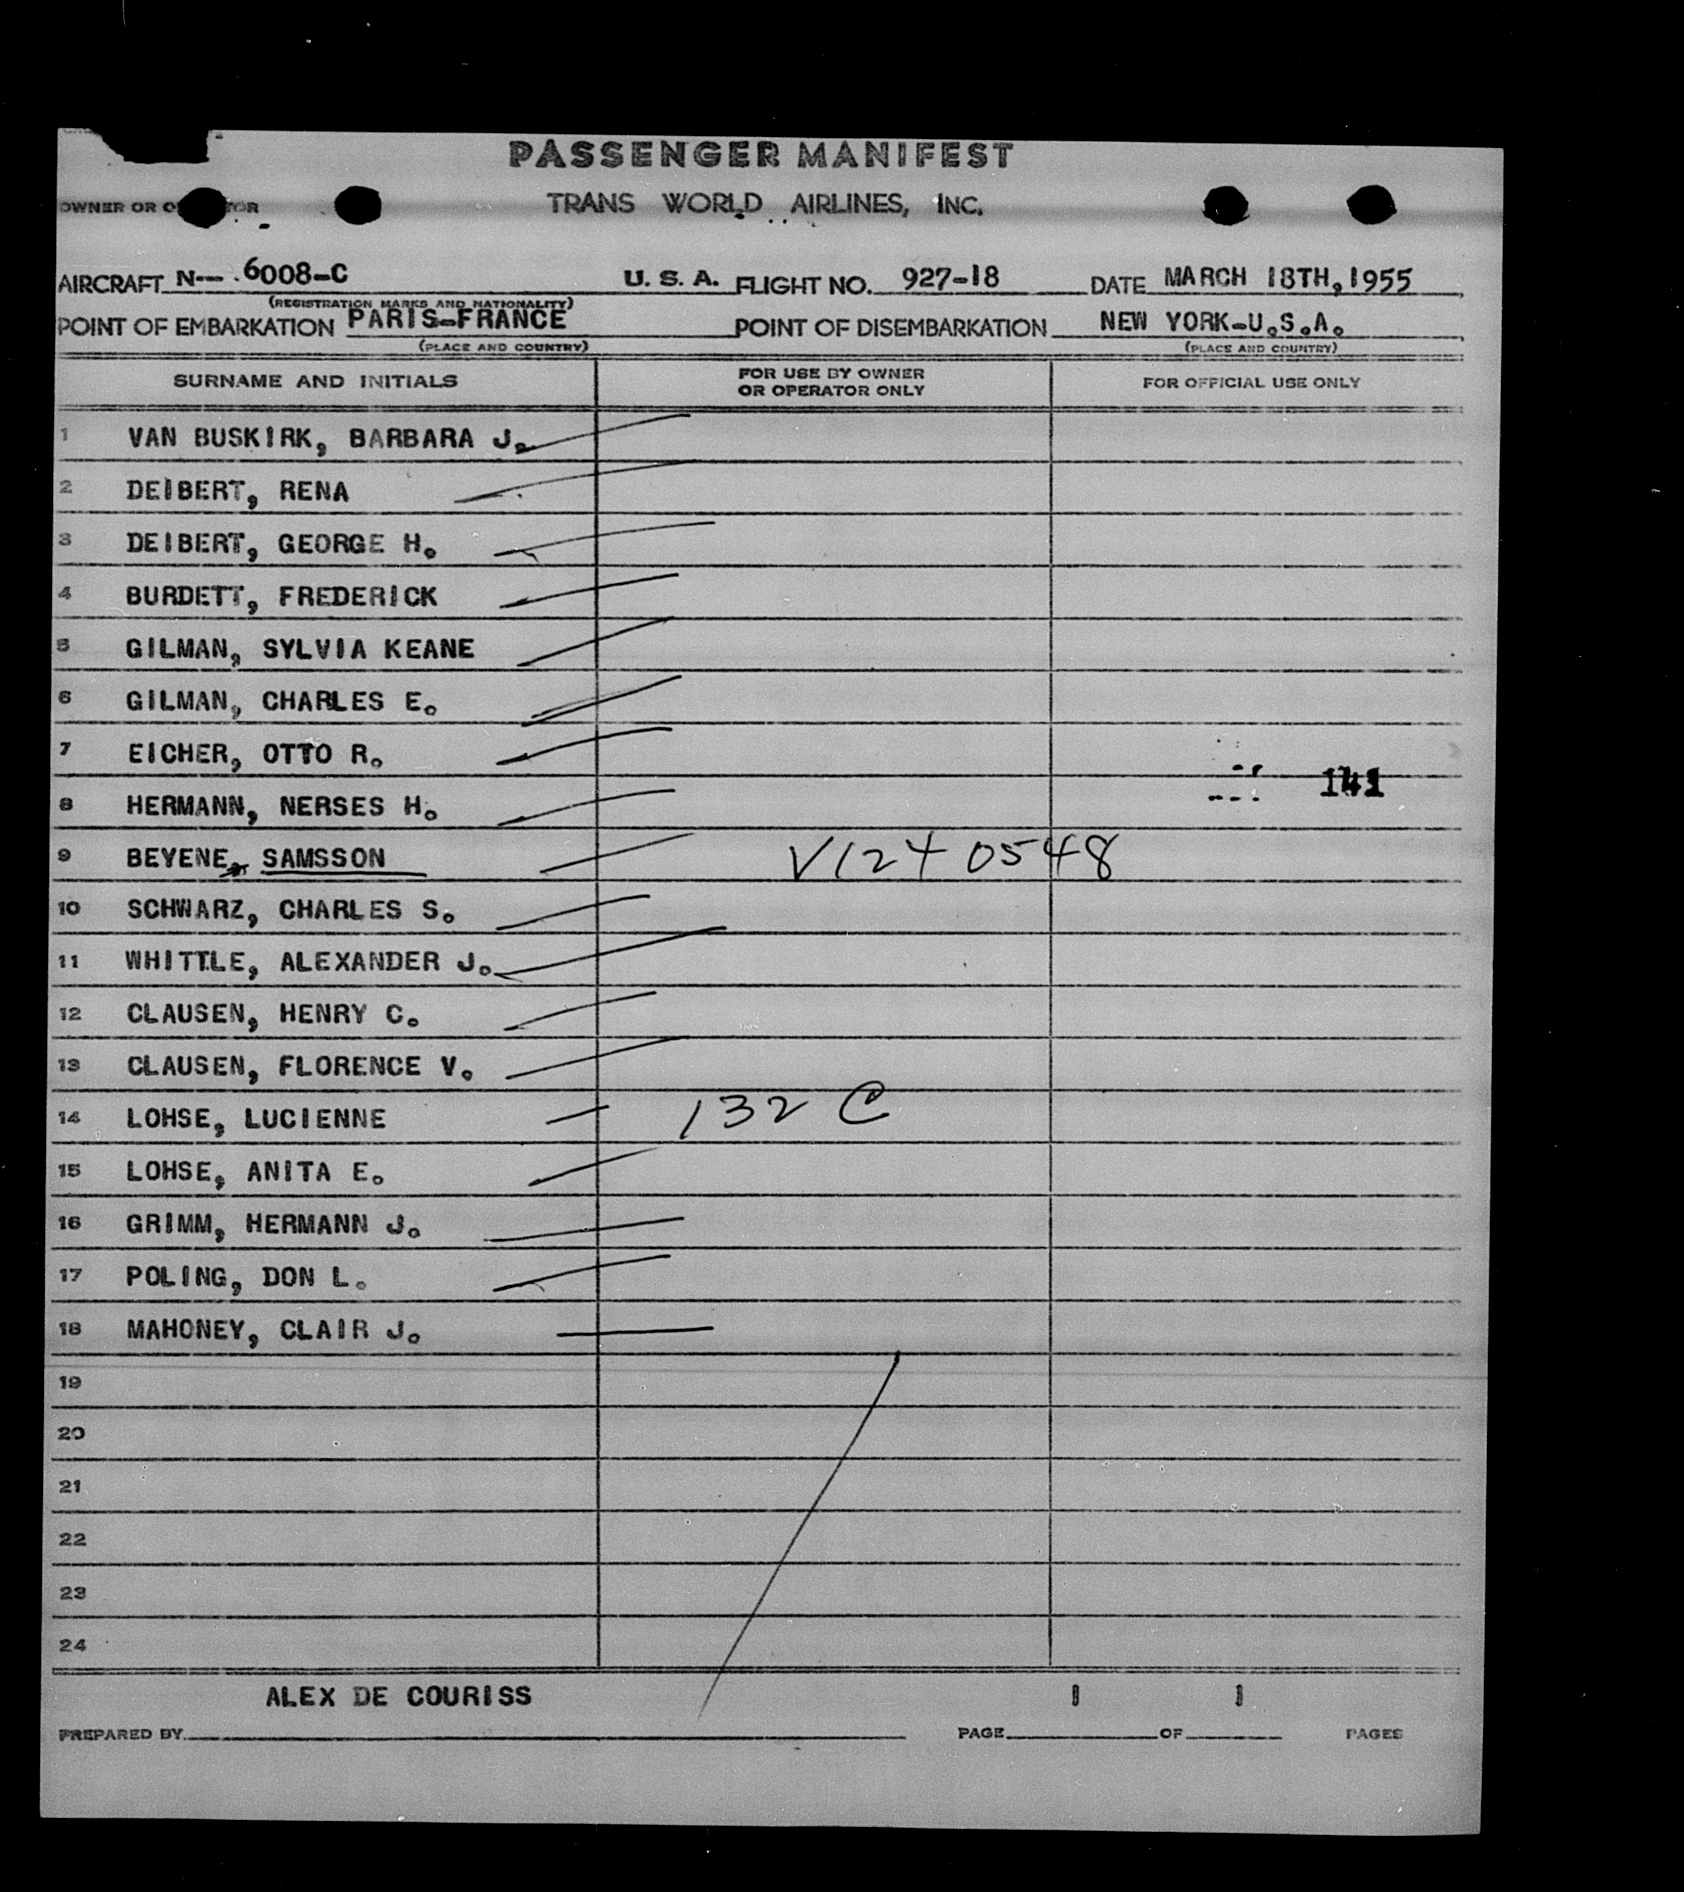 PASSENGER MANIFEST
OWNER OR OPERATOR
TRANS WORLD AIRLINES, INC.
AIRCRAFT N-- 6008-C U. S. A. FLIGHT NO. 927-18 DATE MARCH 18TH, 1955
(REGISTRATION MARKS AND NATIONALITY)
POINT OF EMBARKATION PARIS-FRANCE POINT OF DISEMBARKATION NEW YORK-U.S.A.
(PLACE AND COUNTRY) (PLACE AND COUNTRY)
SURNAME AND INITIALS FOR USE BY OWNER OR OPERATOR ONLY FOR OFFICIAL USE ONLY
1 VAN BUSKIRK, BARBARA J.
2 DEIBERT, RENA
3 DEIBERT, GEORGE H.
4 BURDETT, FREDERICK
5 GILMAN, SYLVIA KEANE
6 GILMAN, CHARLES E.
7 EICHER, OTTO R.
141
8 HERMANN, NERSES H.
9 BEYENE, SAMSSON V1240548
10 SCHWARZ, CHARLES S.
11 WHITTLE, ALEXANDER J.
12 CLAUSEN, HENRY C.
13 CLAUSEN, FLORENCE V.
14 LOHSE, LUCIENNE 132 C
15 LOHSE, ANITA E.
16 GRIMM, HERMANN J.
17 POLING, DON L.
18 MAHONEY, CLAIR J.
19
20
21
22
23
24
ALEX DE COURISS 1 1
PREPARED BY PAGE OF PAGES